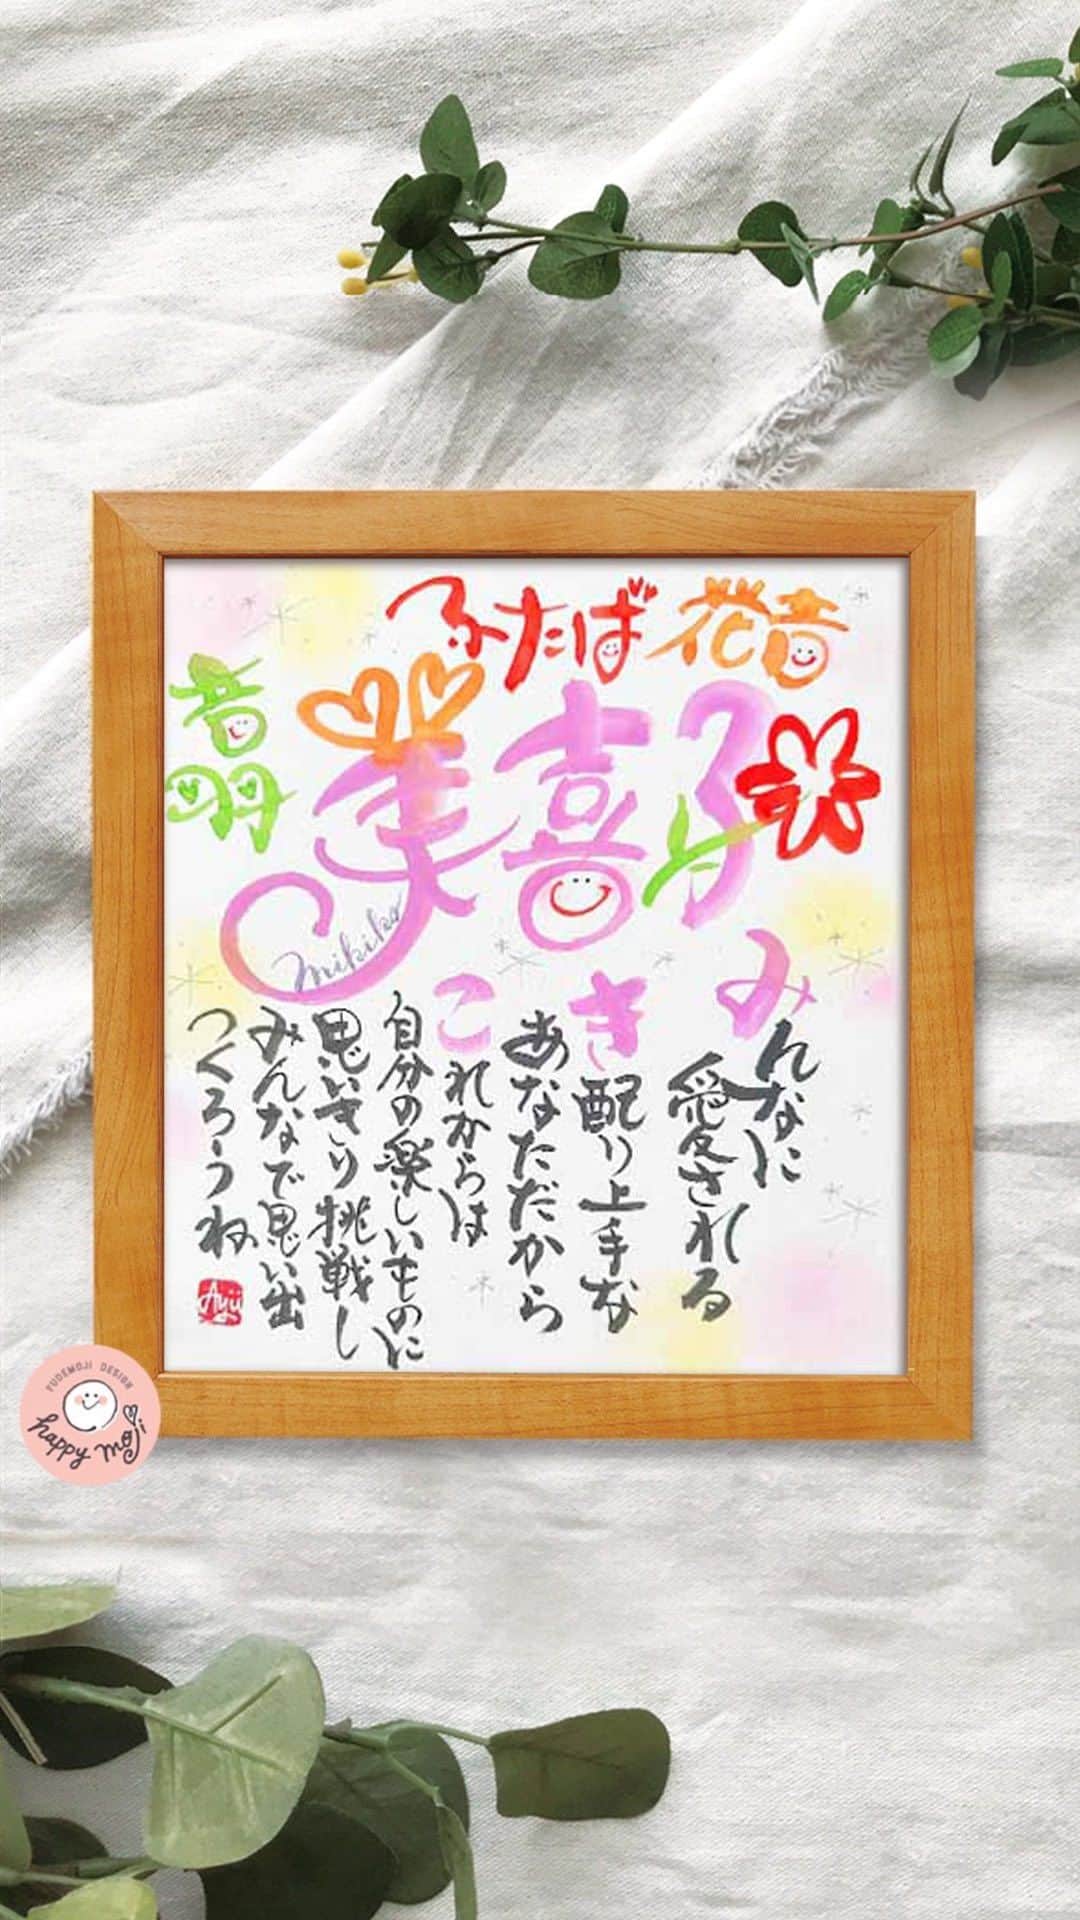 ふたば 花音
音羽
美喜子
mikiko
みんなに
愛される
き配り上手な
あなただから
これからは
自分の楽しいものに
思いきり挑戦し
みんなで思い出
つくろうね
Ayu
FUDEMOJI DESIGN
happy moji